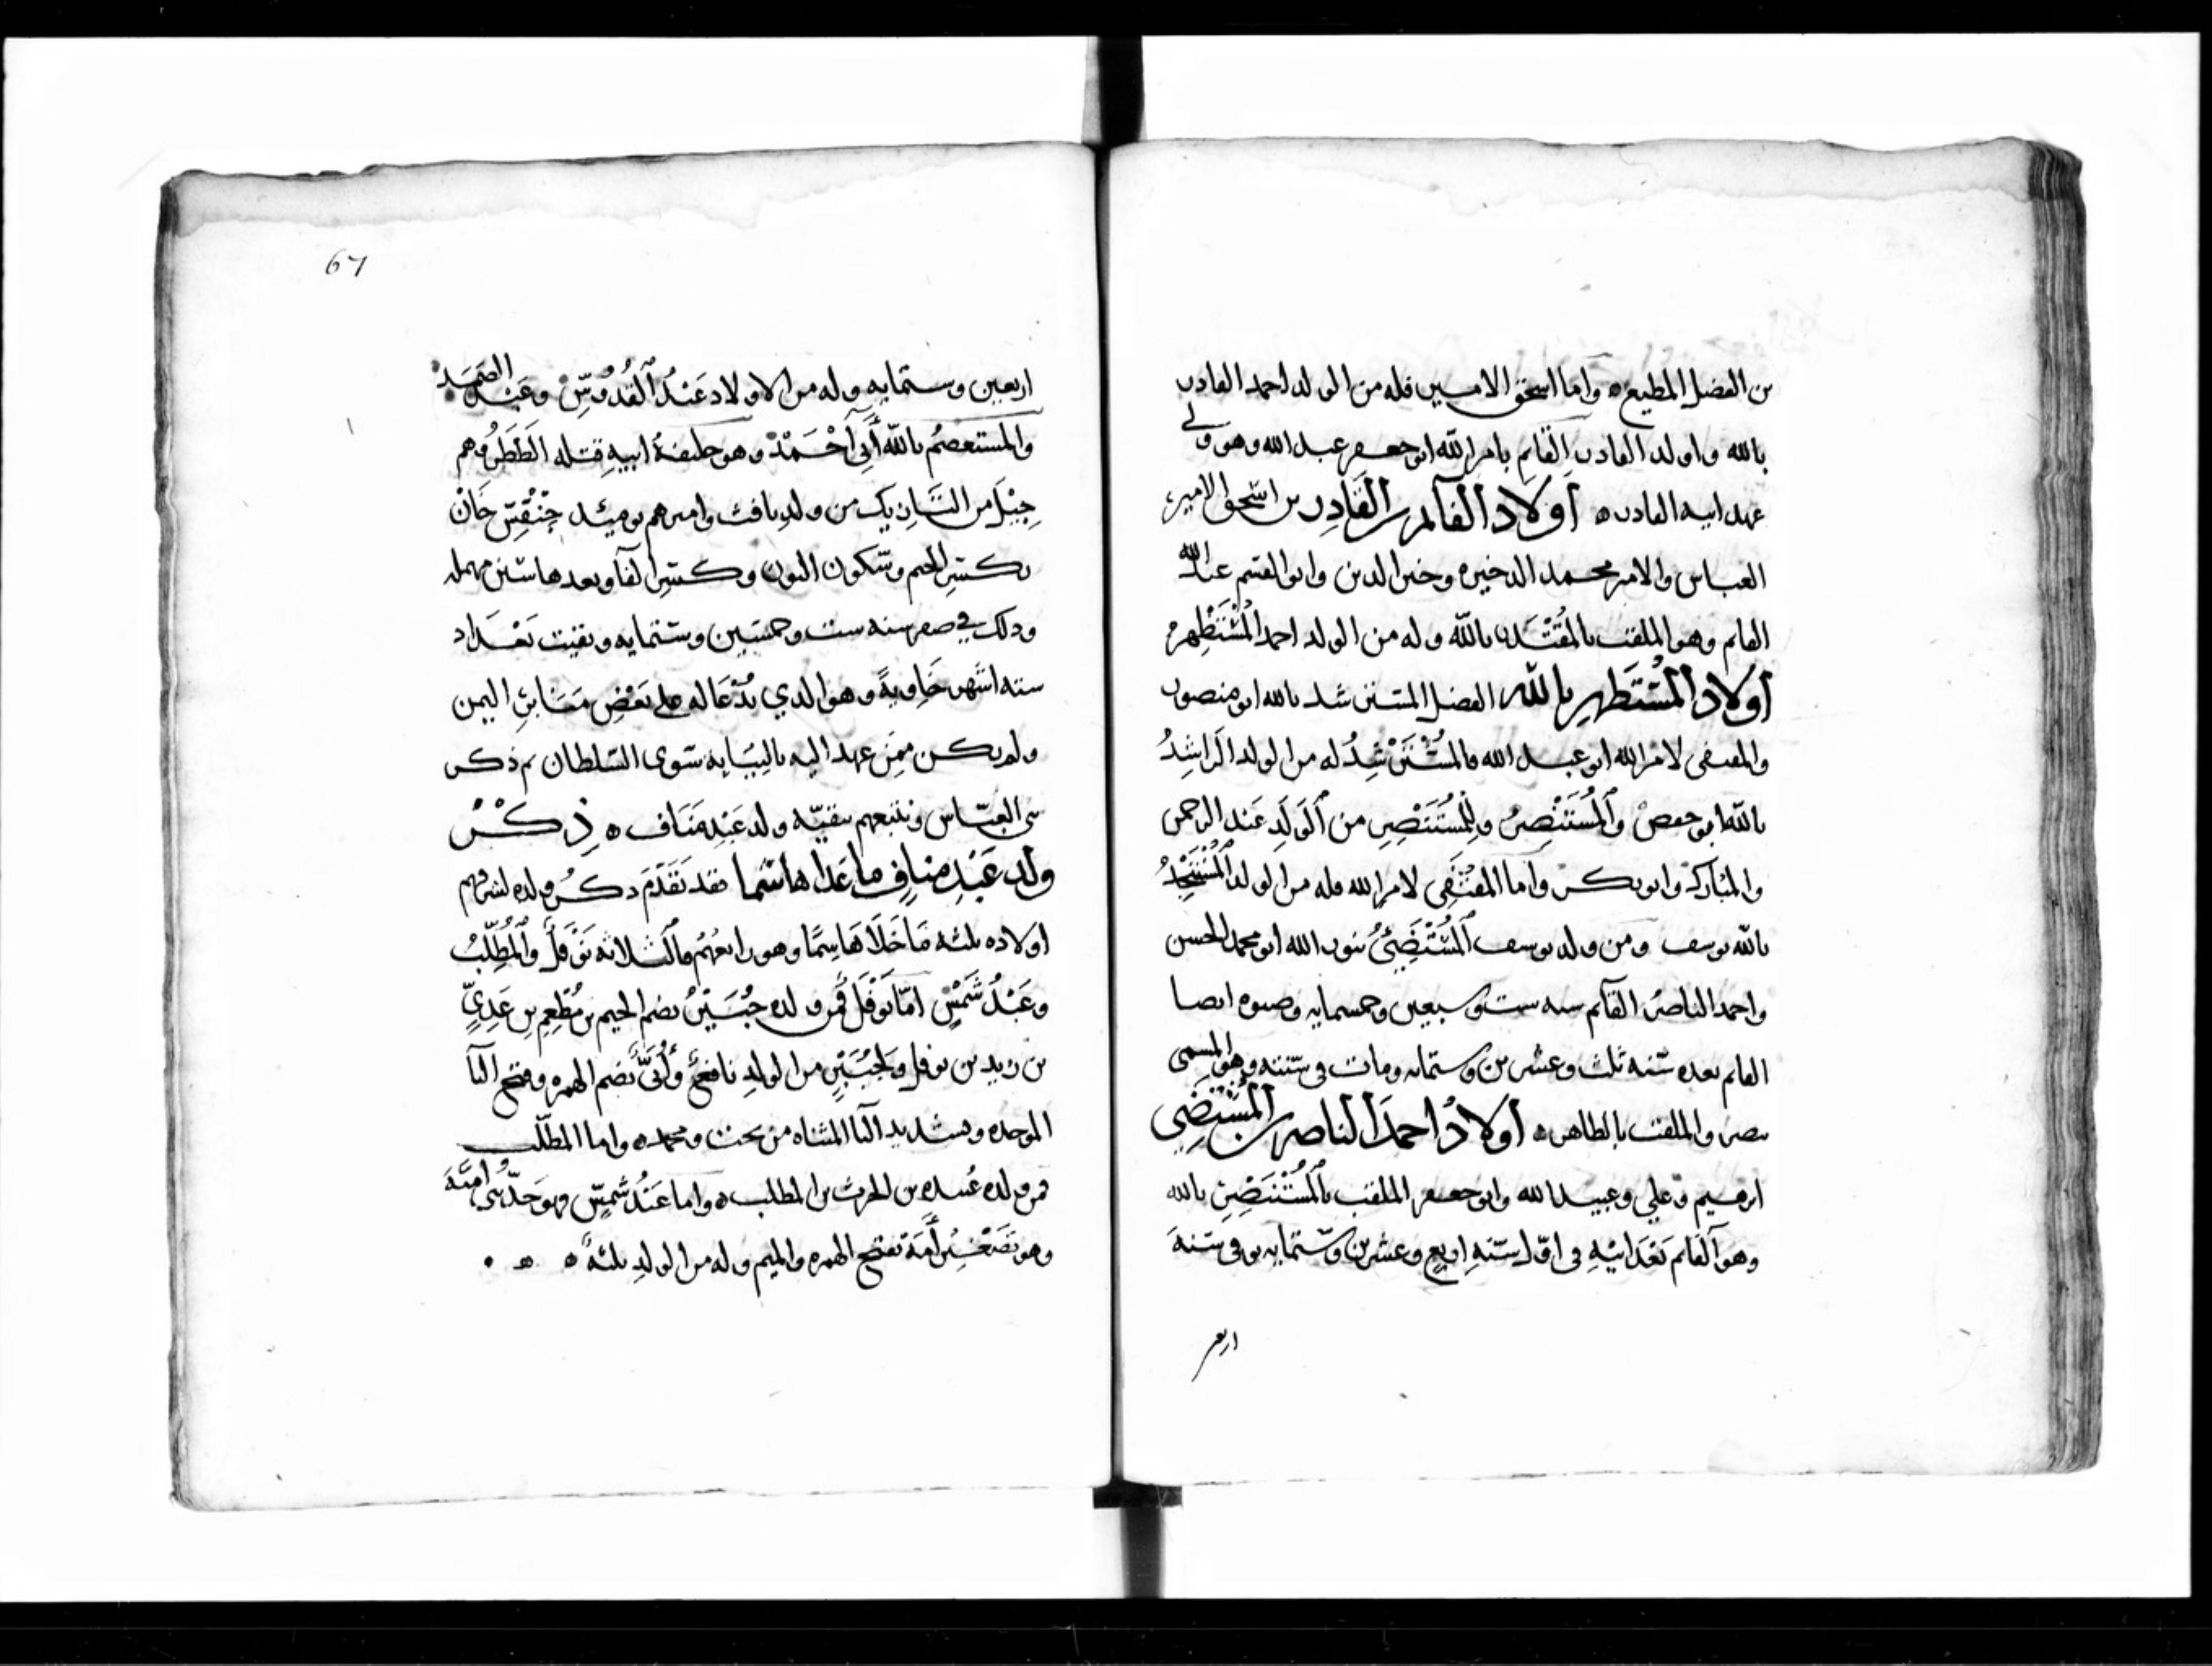 بن الفضل المطيع ه واما اسحق الامير فله من الولد احمد القادر
بالله واولد القادر القايم بامر الله ابو جعفر عبد الله وهو ولي
عهد ابيه القادر ه أولاد القآيم بن القادر بن اسحق الامير
العباس والامير محمد الدخيره وخير الدين وابو القسم عبد الله
القايم وهو الملقب بالمقتدي بالله وله من الولد احمد المستظهر
أولاد المستظهر بالله الفضل المسترشد بالله ابو منصور
والمقتفى لامر الله ابو عبد الله فالمسترشد له من الولد الراشد
بالله ابو جعفر والمستنصر وللمستنصر من الولد عبد الرحمن
والمبارك وابو بكر واما المقتفى لامر الله فله من الولد المستنجد
بالله يوسف ومن ولد يوسف المستضي بنور الله ابو محمد الحسن
واحمد الناصر القآيم سنه ست وسبعين وخمسمايه وصنوه ايضا
القايم بعده سنه ثلث وعشرين وستمايه ومات في سنته وهو المسمى
بصر والملقب بالطاهر ه أولاد احمد الناصر بن المستضي
ابرهيم وعلي وعبيد الله وابو جعفر الملقب بالمستنصر بالله
وهو القايم بعد ابيه في اول سنة اربع وعشرين وستمايه توفي سنة
اربعين
67
اربعين وستمايه وله من الاولاد عبد القدوس وعبد الصمد
والمستعصم بالله أبي أحمد وهو خليفة ابيه قتله الططر وهم
جيل من ولد يافث واميرهم يوميد جنقس خان
بكسر الجيم وسكون النون وكسر القاف وبعدها سين مهمله
ودلك في صفر سنه ست وخمسين وستمايه وبقيت بغداد
سته اشهر خاوية وهو الدي يدعا له على بعض منابر اليمن
ولم يكن ممن عهد اليه بالنيابه سوى السلطان تم ذكر
بني العباس ونتبعهم ببقية ولد عبد مناف ه ذكر
ولد عبد مناف ما عدا هاشما فقد تقدم دكر ولده لشرفهم
اولاده ثلثه ما خلا هاشما وهو رابعهم فالثلاثه نوفل والمطلب
وعبد شمس اما نوفل فمن ولده جبير بضم الجيم بن مطعم بن عدي
بن نوفل ولجبير من الولد نافع وأبى بضم الهمزه وفتح البا
الموحده وتشديد اليا المثناه من تحت ومحمد ه واما المطلب
فمن ولده عبيده بن الحرث بن المطلب ه واما عبد شمس فهو جد بني امية
وهو تصغير أمة بفتح الهمزه والميم وله من الولد ثلثة ه ه